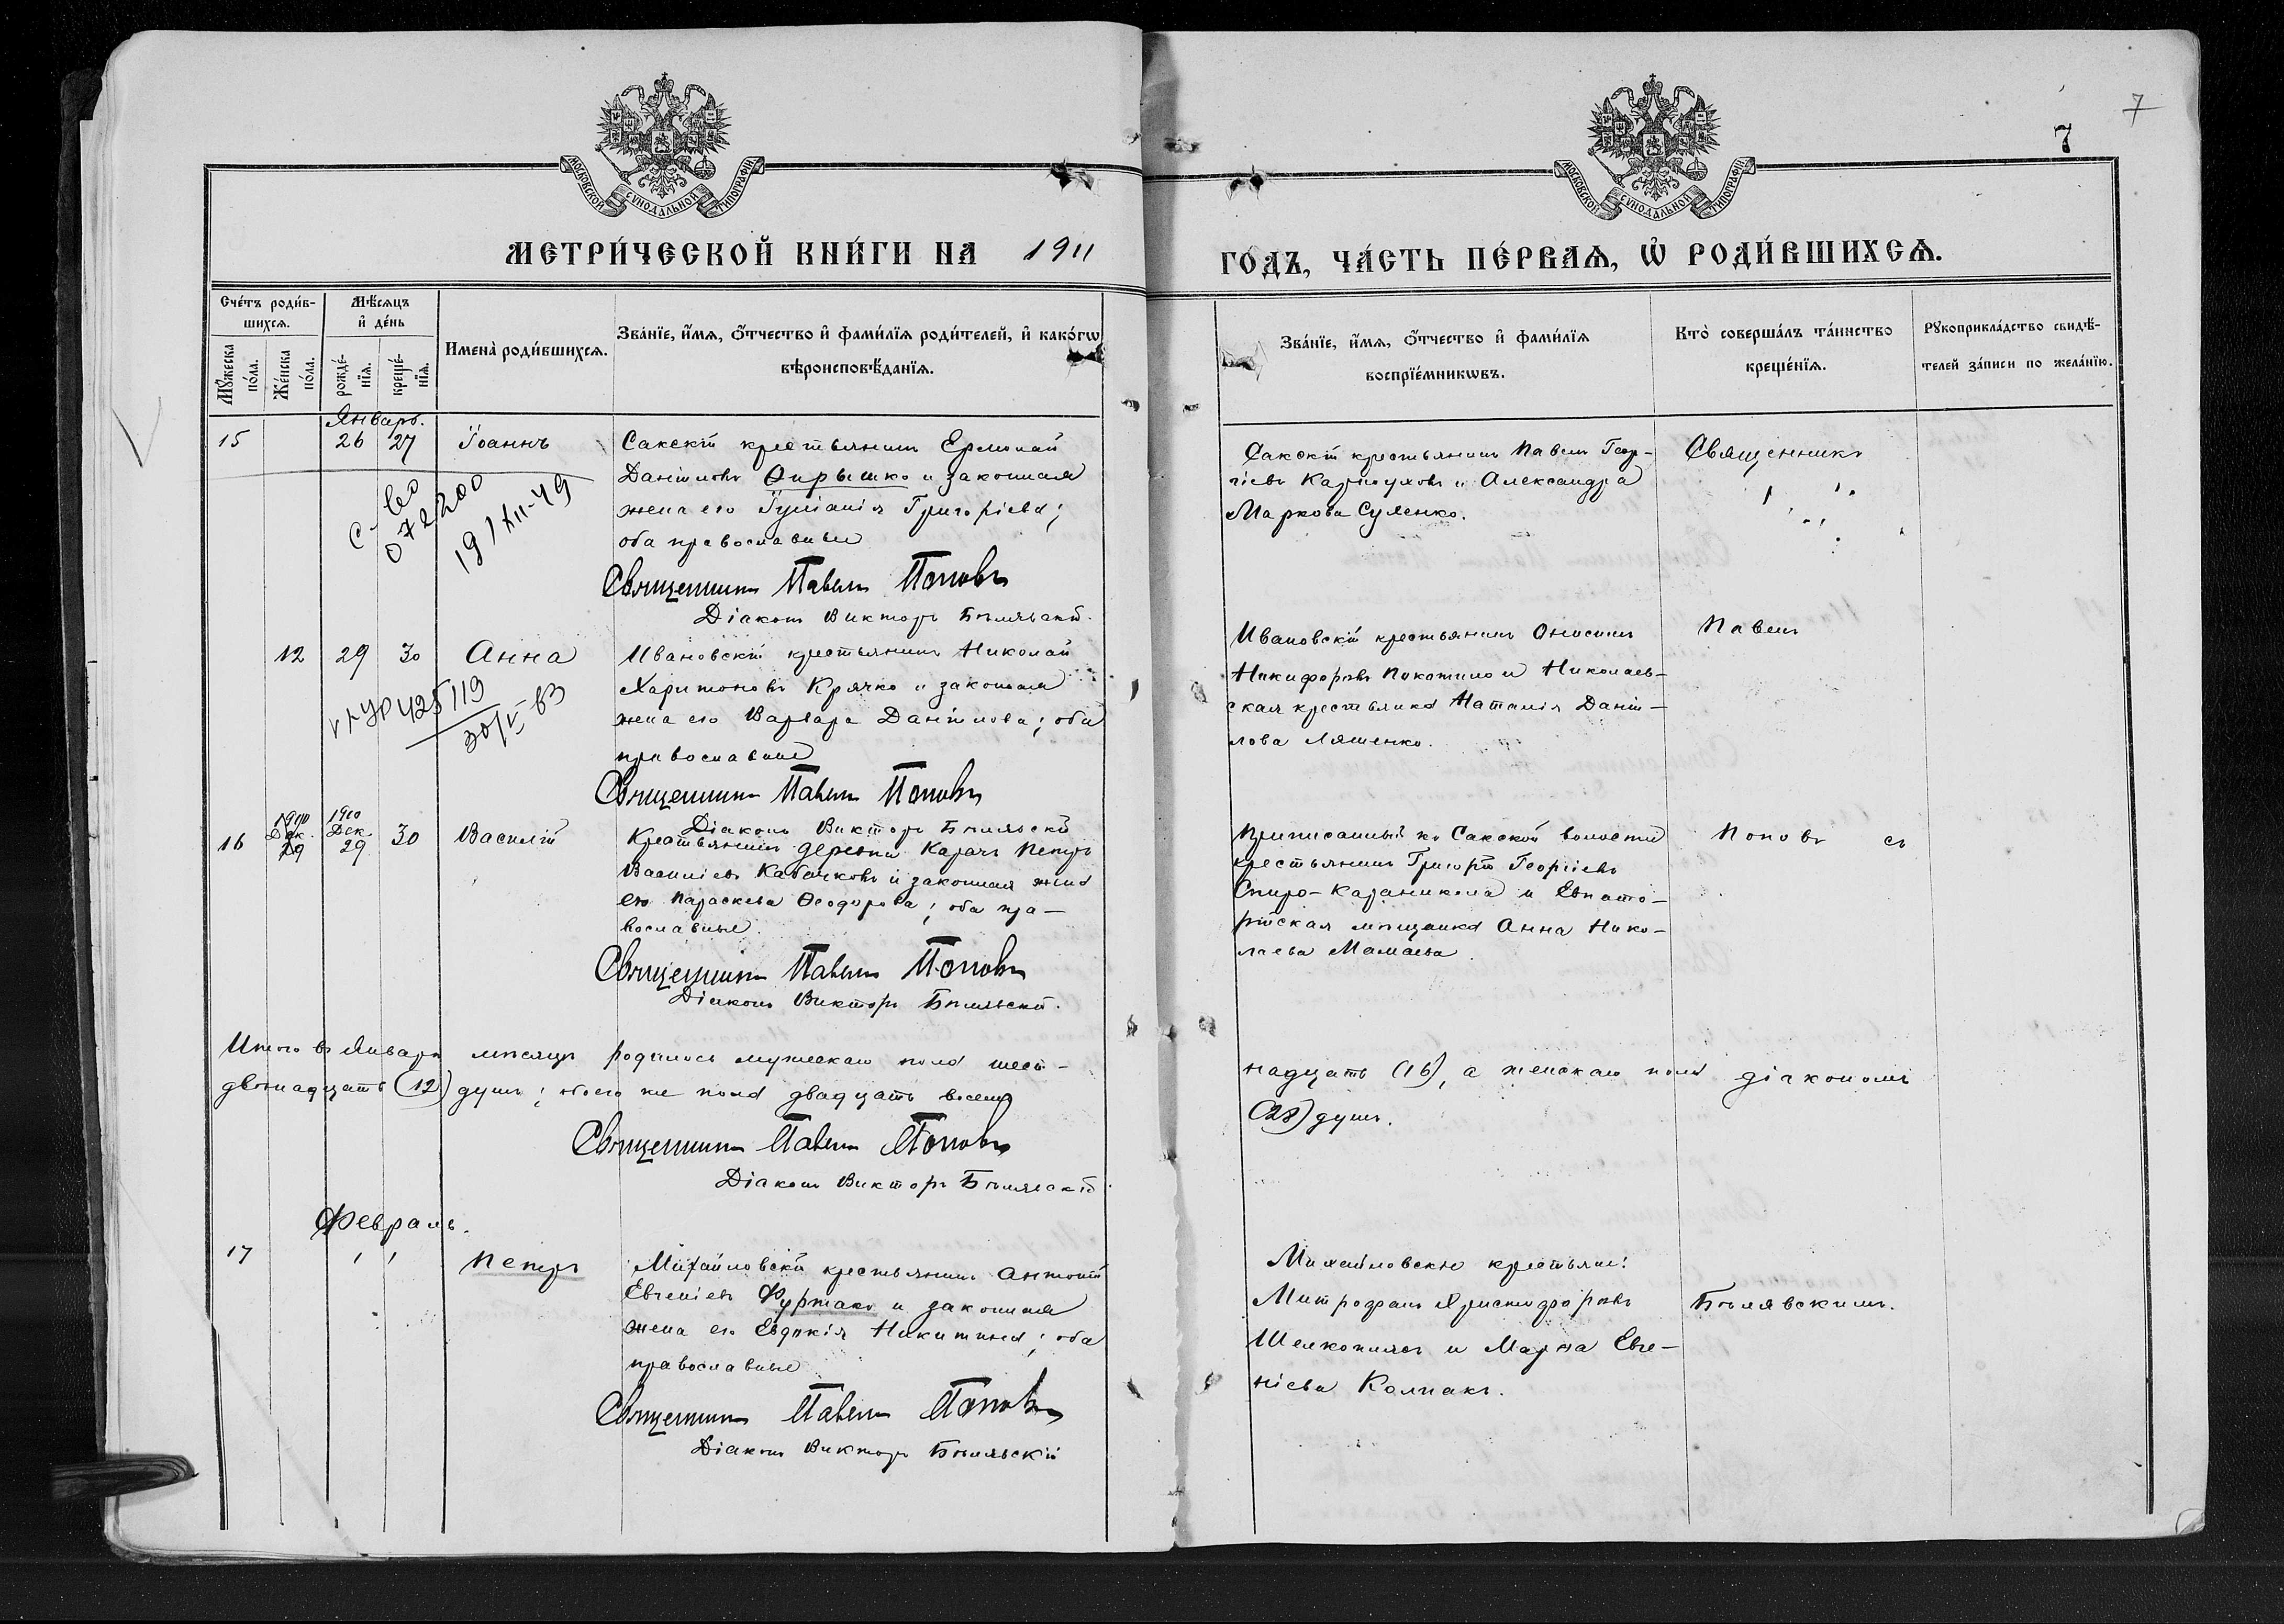 7
7
МОСКОВСКОЙ СѴНОДАЛЬНОЙ ТИПОГРАФІИ
МОСКОВСКОЙ СѴНОДАЛЬНОЙ ТИПОГРАФІИ
МЕТРИ́ЧЕСКОЙ КНИ́ГИ НА 1911
ГО́ДЪ, ЧА́СТЬ ПЕ́РВАѦ, Ѡ҆ РОДИ́ВШИХСѦ.
Сче́тъ роди́в-
шихсѧ.
Мꙋ́жеска по́ла.
Же́нска по́ла.
Мѣ́сѧцъ
и҆ де́нь
рожде́-
нїѧ.
креще́-
нїѧ.
Имена̀ роди́вшихсѧ.
Зва́нїе, и҆́мѧ, ѻ҆́тчество и҆ фами́лїѧ роди́телей, и҆ како́гѡ
вѣроисповѣ́данїѧ.
Зва́нїе, и҆́мѧ, ѻ҆́тчество и҆ фами́лїѧ
воспрїе́мникѡвъ.
Кто̀ соверша́лъ та́инство
креще́нїѧ.
Рꙋкоприкла́дство свидѣ́-
телей за́писи по жела́нїю.
Январь.
15 26 27 Іоаннъ
Сакскій крестьянинъ Ермолай
Даніиловъ Опрышко и законная
жена его Іуліанія Григоріева;
оба православные
Священникъ Павелъ Поповъ
Діаконъ Викторъ Бѣлявскій.
с-во
072200
19/XII-49
Сакскій крестьянинъ Павелъ Геор-
гіевъ Карнауховъ и Александра
Маркова Суленко.
Священникъ
12 29 30 Анна
Ивановскій крестьянинъ Николай
Харитоновъ Крячко и законная
жена его Варвара Даніилова; оба
православные
Священникъ Павелъ Поповъ
Діаконъ Викторъ Бѣлявскій
425119
30/V-83
Ивановскій крестьянинъ Онисимъ
Никифоровъ Покотило и Николаев-
ская крестьянка Наталія Даніи-
лова Ляшенко.
Павелъ
16 1910 Дек. 29 1910 Дек. 29 30 Василій
Крестьянинъ деревни Карачъ Петръ
Василіевъ Кабачковъ и законная жена
его Параскева Ѳеодорова; оба пра-
вославные.
Священникъ Павелъ Поповъ
Діаконъ Викторъ Бѣлявскій.
Приписанный къ Сакской волости
крестьянинъ Григорій Георгіевъ
Спиро-Караникола и Евпато-
рійская мѣщанка Анна Нико-
лаева Мамаева.
Поповъ съ
Итого въ Январѣ мѣсяцѣ родилось мужескаго пола шест-
надцать (16), а женскаго пола
двѣнадцать (12) душъ; обоего же пола двадцать восемь
(28) душъ.
діакономъ
Священникъ Павелъ Поповъ
Діаконъ Викторъ Бѣлявскій
Февраль.
17 Петръ
Михайловскій крестьянинъ Антоній
Евгеніевъ Фурманъ и законная
жена его Евдокія Никитина; оба
православные
Священникъ Павелъ Поповъ
Діаконъ Викторъ Бѣлявскій
Михайловскіе крестьяне:
Митрофанъ Христофоровъ
Шелкоплясъ и Марѳа Евге-
ніева Колпакъ.
Бѣлявскимъ.